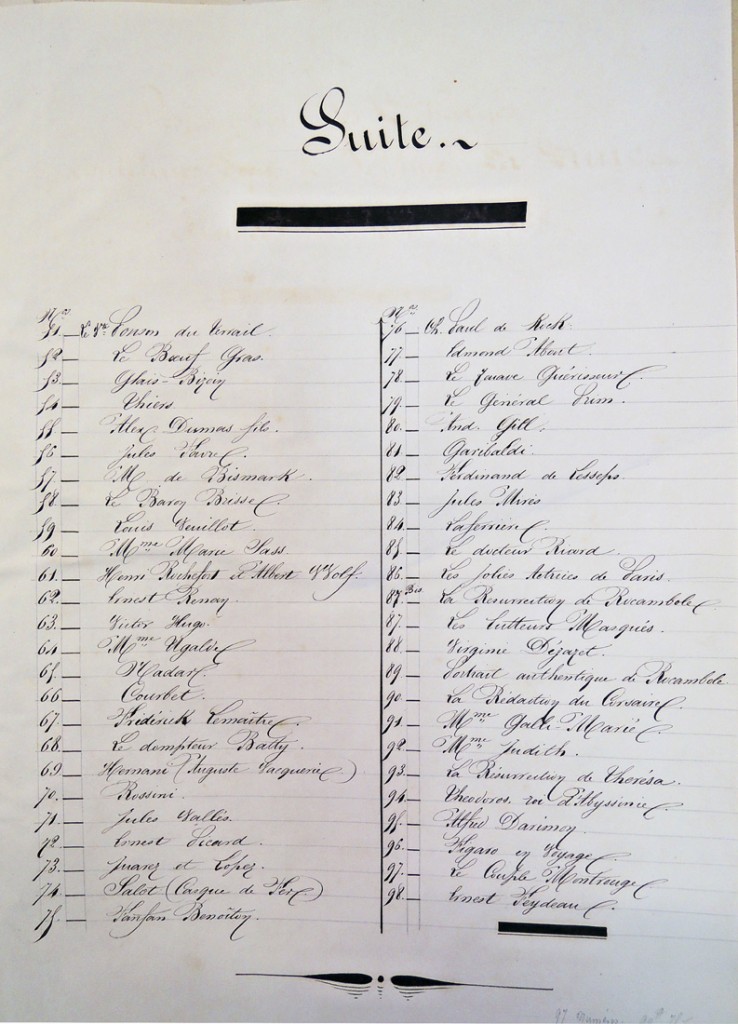 Suite.
Nos
51 — Le Vte Ponson du Terrail.
52 — Le Bœuf Gras.
53 — Glais-Bizoin
54 — Thiers.
55 — Alex. Dumas fils.
56 — Jules Favre.
57 — M. de Bismark.
58 — Le Baron Brisse.
59 — Louis Veuillot.
60 — Mme Marie Sass.
61 — Henri Rochefort et Albert Wolf.
62 — Ernest Renan.
63 — Victor Hugo.
64 — Mme Ugalde
65 — Nadar.
66 — Courbet.
67 — Frédérick Lemaître.
68 — Le dompteur Batty.
69 — Hernani (Auguste Vacquerie.)
70 — Rossini.
71 — Jules Vallès.
72 — Ernest Picard.
73 — Juarez et Lopez.
74 — Salot (Casque de Fer)
75 — Fanfan Benoîton.
Nos
76 — Ch. Paul de Kock.
77 — Edmond About.
78 — Le Zouave Guérisseur.
79 — Le Général Prim.
80 — And. Gill.
81 — Garibaldi.
82 — Ferdinand de Lesseps.
83 — Jules Mirès
84 — Laferrière.
85 — Le docteur Ricord.
86 — Les jolies Actrices de Paris.
87 Bis — La Résurrection de Rocambole.
87 — Les lutteurs Masqués.
88 — Virginie Déjazet.
89 — Portrait authentique de Rocambole.
90 — La Rédaction du Corsaire.
91 — Mme Galli-Marié.
92 — Mme Judith.
93 — La Résurrection de Thérésa.
94 — Théodoros, roi d'Abyssinie.
95 — Alfred Darimon.
96 — Figaro en Voyage.
97 — Le Couple Montrouge.
98 — Ernest Feydeau.